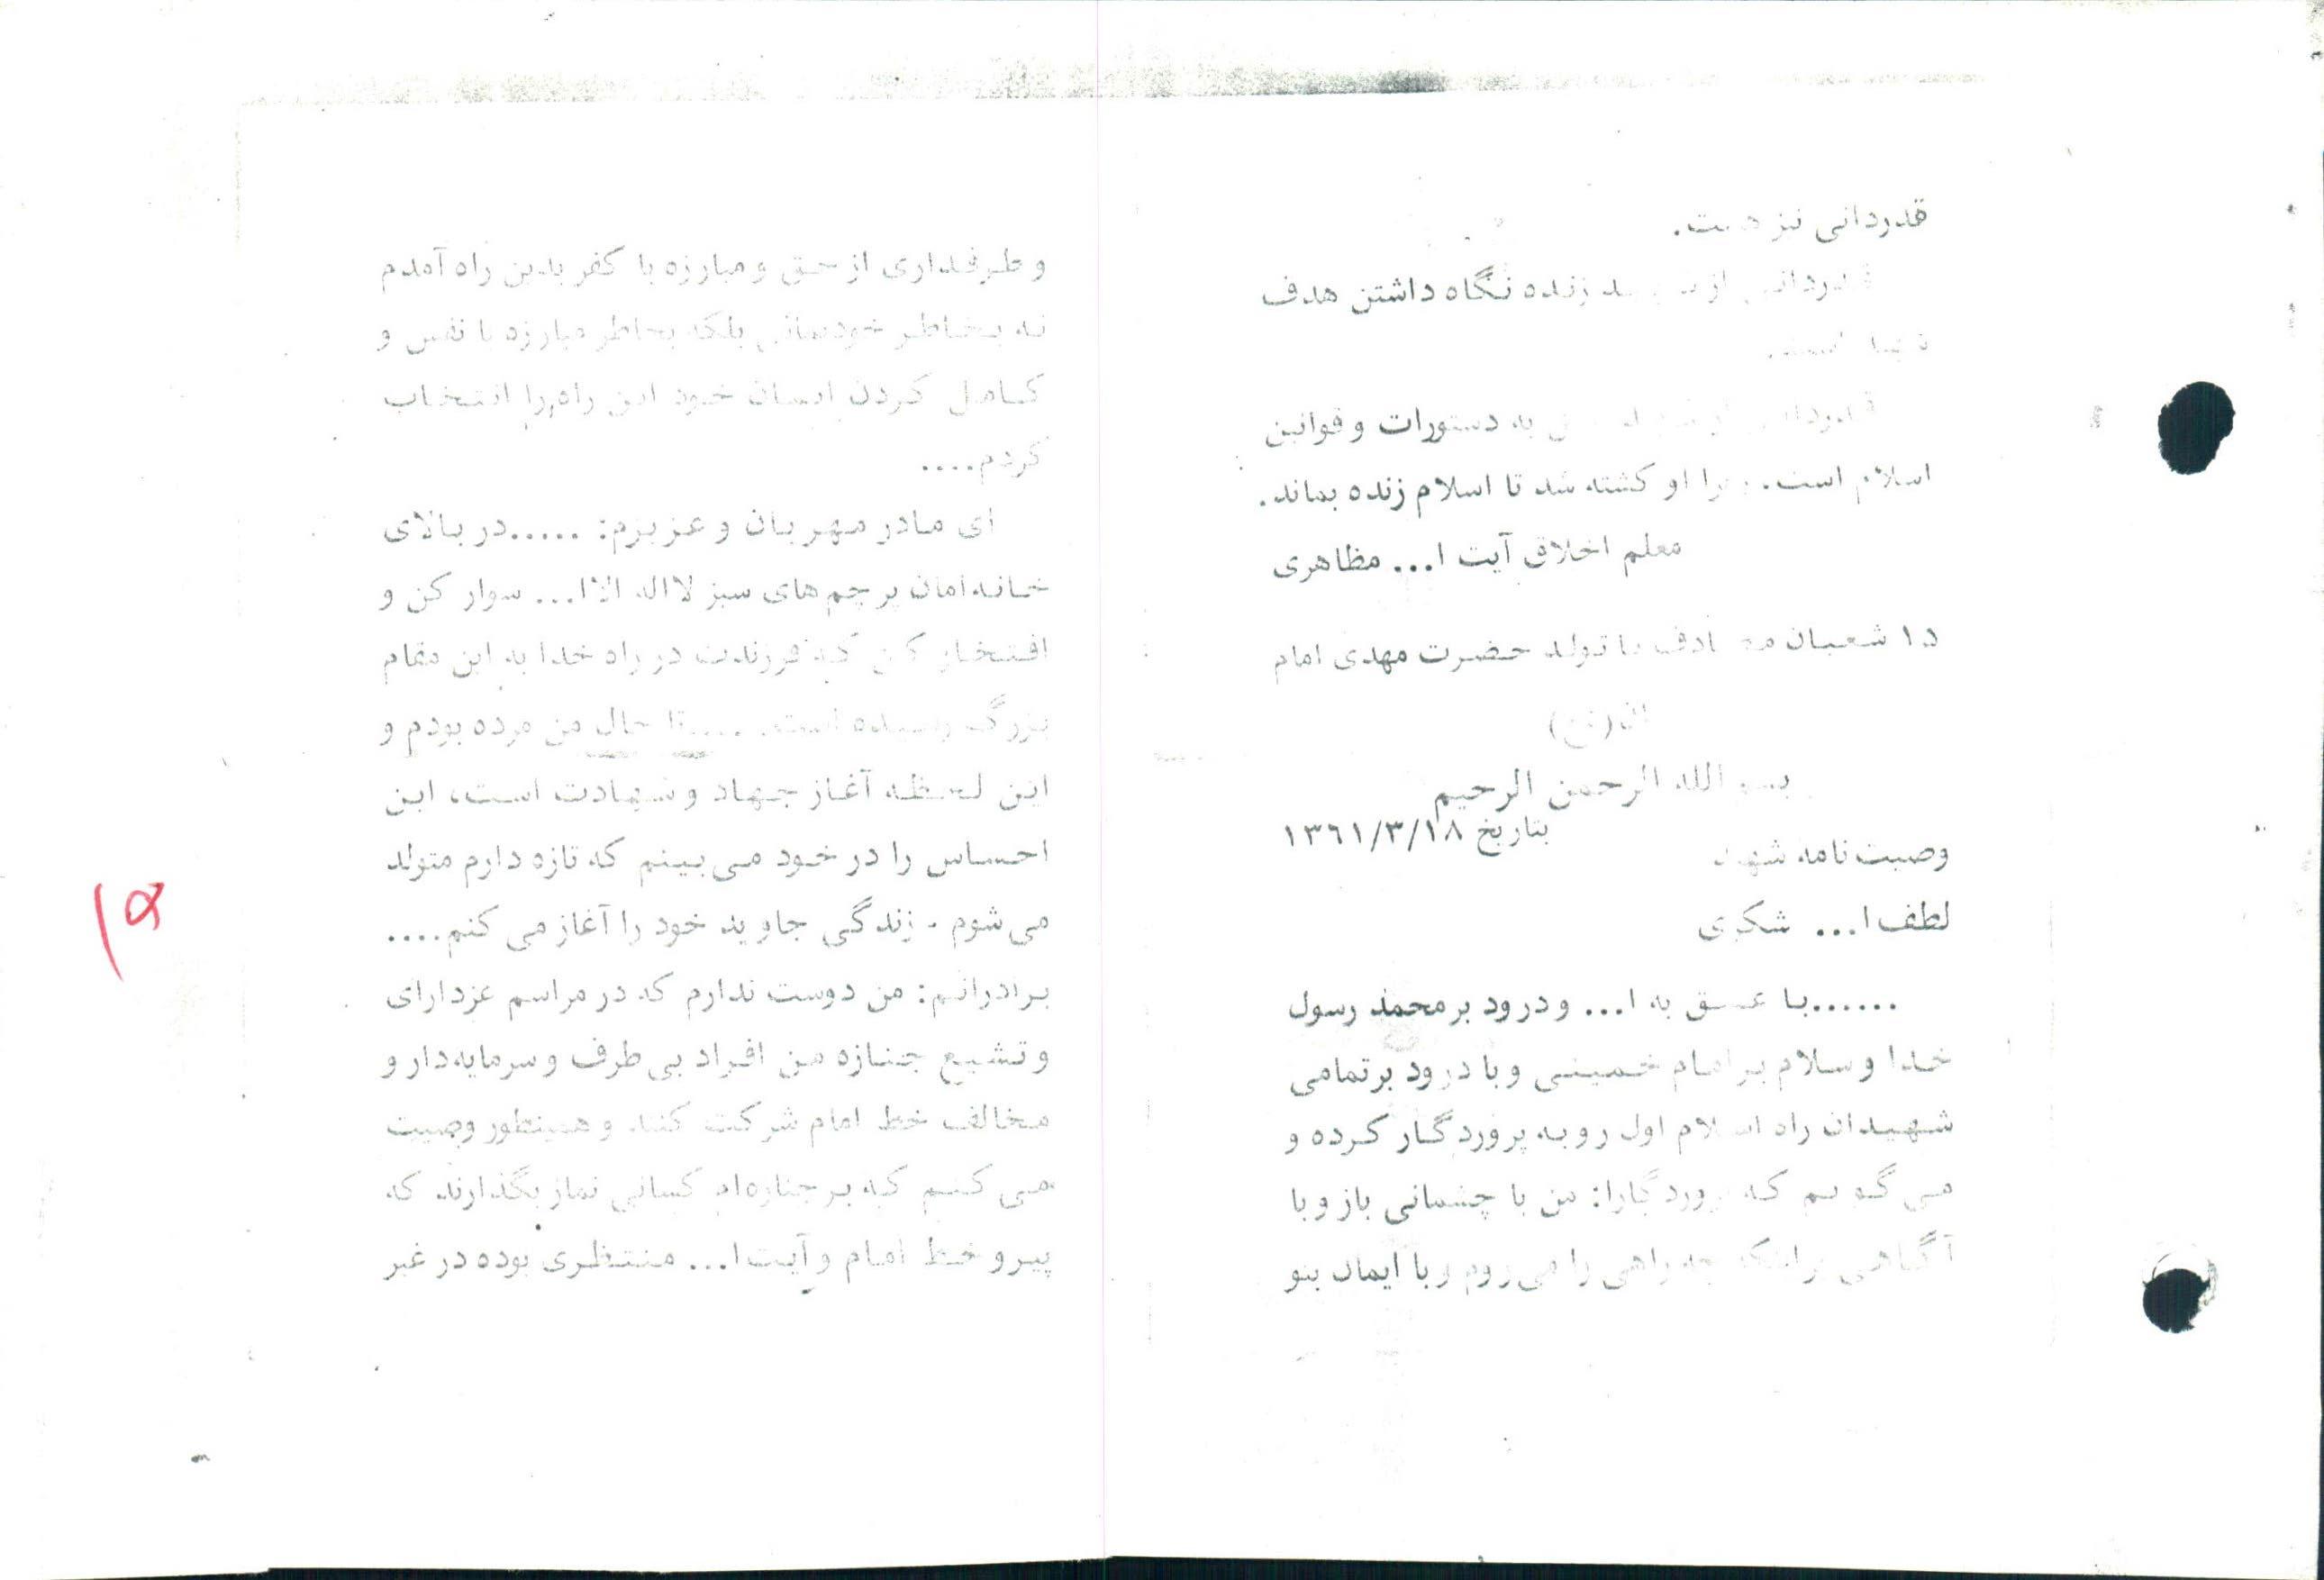 قدردانی نیز هست.
قدردانی از شهید زنده نگاه داشتن هدف
شهید است.
قدردانی از شهید به دستورات و قوانین
اسلام است. زیرا او کشته شد تا اسلام زنده بماند.
معلم اخلاق آیت ا... مظاهری
۱۵ شعبان مصادف با تولد حضرت مهدی امام
زمان (عج)
بسم الله الرحمن الرحیم
بتاریخ ۱۳۶۱/۳/۱۸
وصیت نامه شهید
لطف ا... شکری
......با عشق به ا... و درود بر محمد رسول
خدا و سلام بر امام خمینی و با درود بر تمامی
شهیدان راه اسلام اول رو به پروردگار کرده و
می گویم که پروردگارا: من با چشمانی باز و با
آگاهی براینکه چه راهی را می روم و با ایمان بتو
و طرفداری از حق و مبارزه با کفر بدین راه آمدم
نه بخاطر خودنمائی بلکه بخاطر مبارزه با نفس و
کامل کردن ایمان خود این راه را انتخاب
کردم....
ای مادر مهربان و عزیزم: .....در بالای
خانه امان پرچم های سبز لااله الاا... سوار کن و
افتخار کن که فرزندت در راه خدا به این مقام
بزرگ رسیده است. ....تا حال من مرده بودم و
این لحظه آغاز جهاد و شهادت است، این
احساس را در خود می بینم که تازه دارم متولد
می شوم - زندگی جاوید خود را آغاز می کنم....
برادرانم: من دوست ندارم که در مراسم عزدارای
و تشیع جنازه من افراد بی طرف و سرمایه دار و
مخالف خط امام شرکت کنند و همینطور وصیت
می کنم که بر جنازه ام کسانی نماز بگذارند که
پیرو خط امام و آیت ا... منتظری بوده در غیر